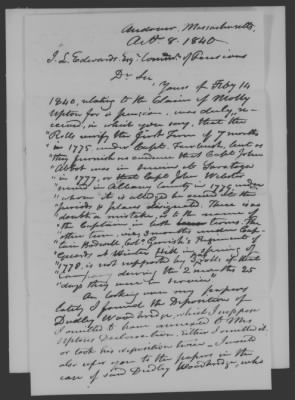 Andover, Massachusetts,
Oct. 8. 1840
J. L. Edwards, Esq. Commr. of Pensions
Dr Sir
Yours of Feby 14
1840, relating to the Claim of Molly
Upton for a pension, was duly re-
ceived, in which you say, that the
"Rolls verify the first Term of 7 months
"in 1775 under Capt. Furbush, but as
"they furnish no evidence that Capt John
"Abbot was in service at Saratoga
"in 1777, or that Capt John Webster
"served in Albany County in 1777, under
"whom it is alledged he served at the
"periods & places designated. There is no
"doubt a mistake, as to the names of
"the Captains in both terms. The
"other term, viz 3 months under Cap-
"tain Bodwell, Col. Gerrish's Regiment of
"Guards at Winter Hill in spring of
"1778, is not supported by Rolls of that
"Company during the 2 months 25
"days they were in service"
On looking over my papers
lately I found the Deposition of
Dudley Woodbridge, which I suppose
I omitted to have annexed to Mrs
Uptons Declaration. Either I omitted it
or took his deposition twice. I would
also refer you to the papers in the
case of said Dudley Woodbridge, who